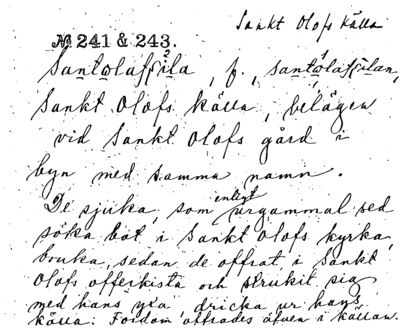 Sankt Olofs källa
№ 241 & 243.
f.,
Sankt Olofs källa, belägen
vid Sankt Olofs gård i
byn med samma namn.
De sjuka, som enligt urgammal sed
söka bot i Sankt Olofs kyrka,
bruka, sedan de offrat i Sankt
Olofs offerkista och strukit sig
med hans yxa dricka ur hans
källa. Fordom offrades äfven i källan.